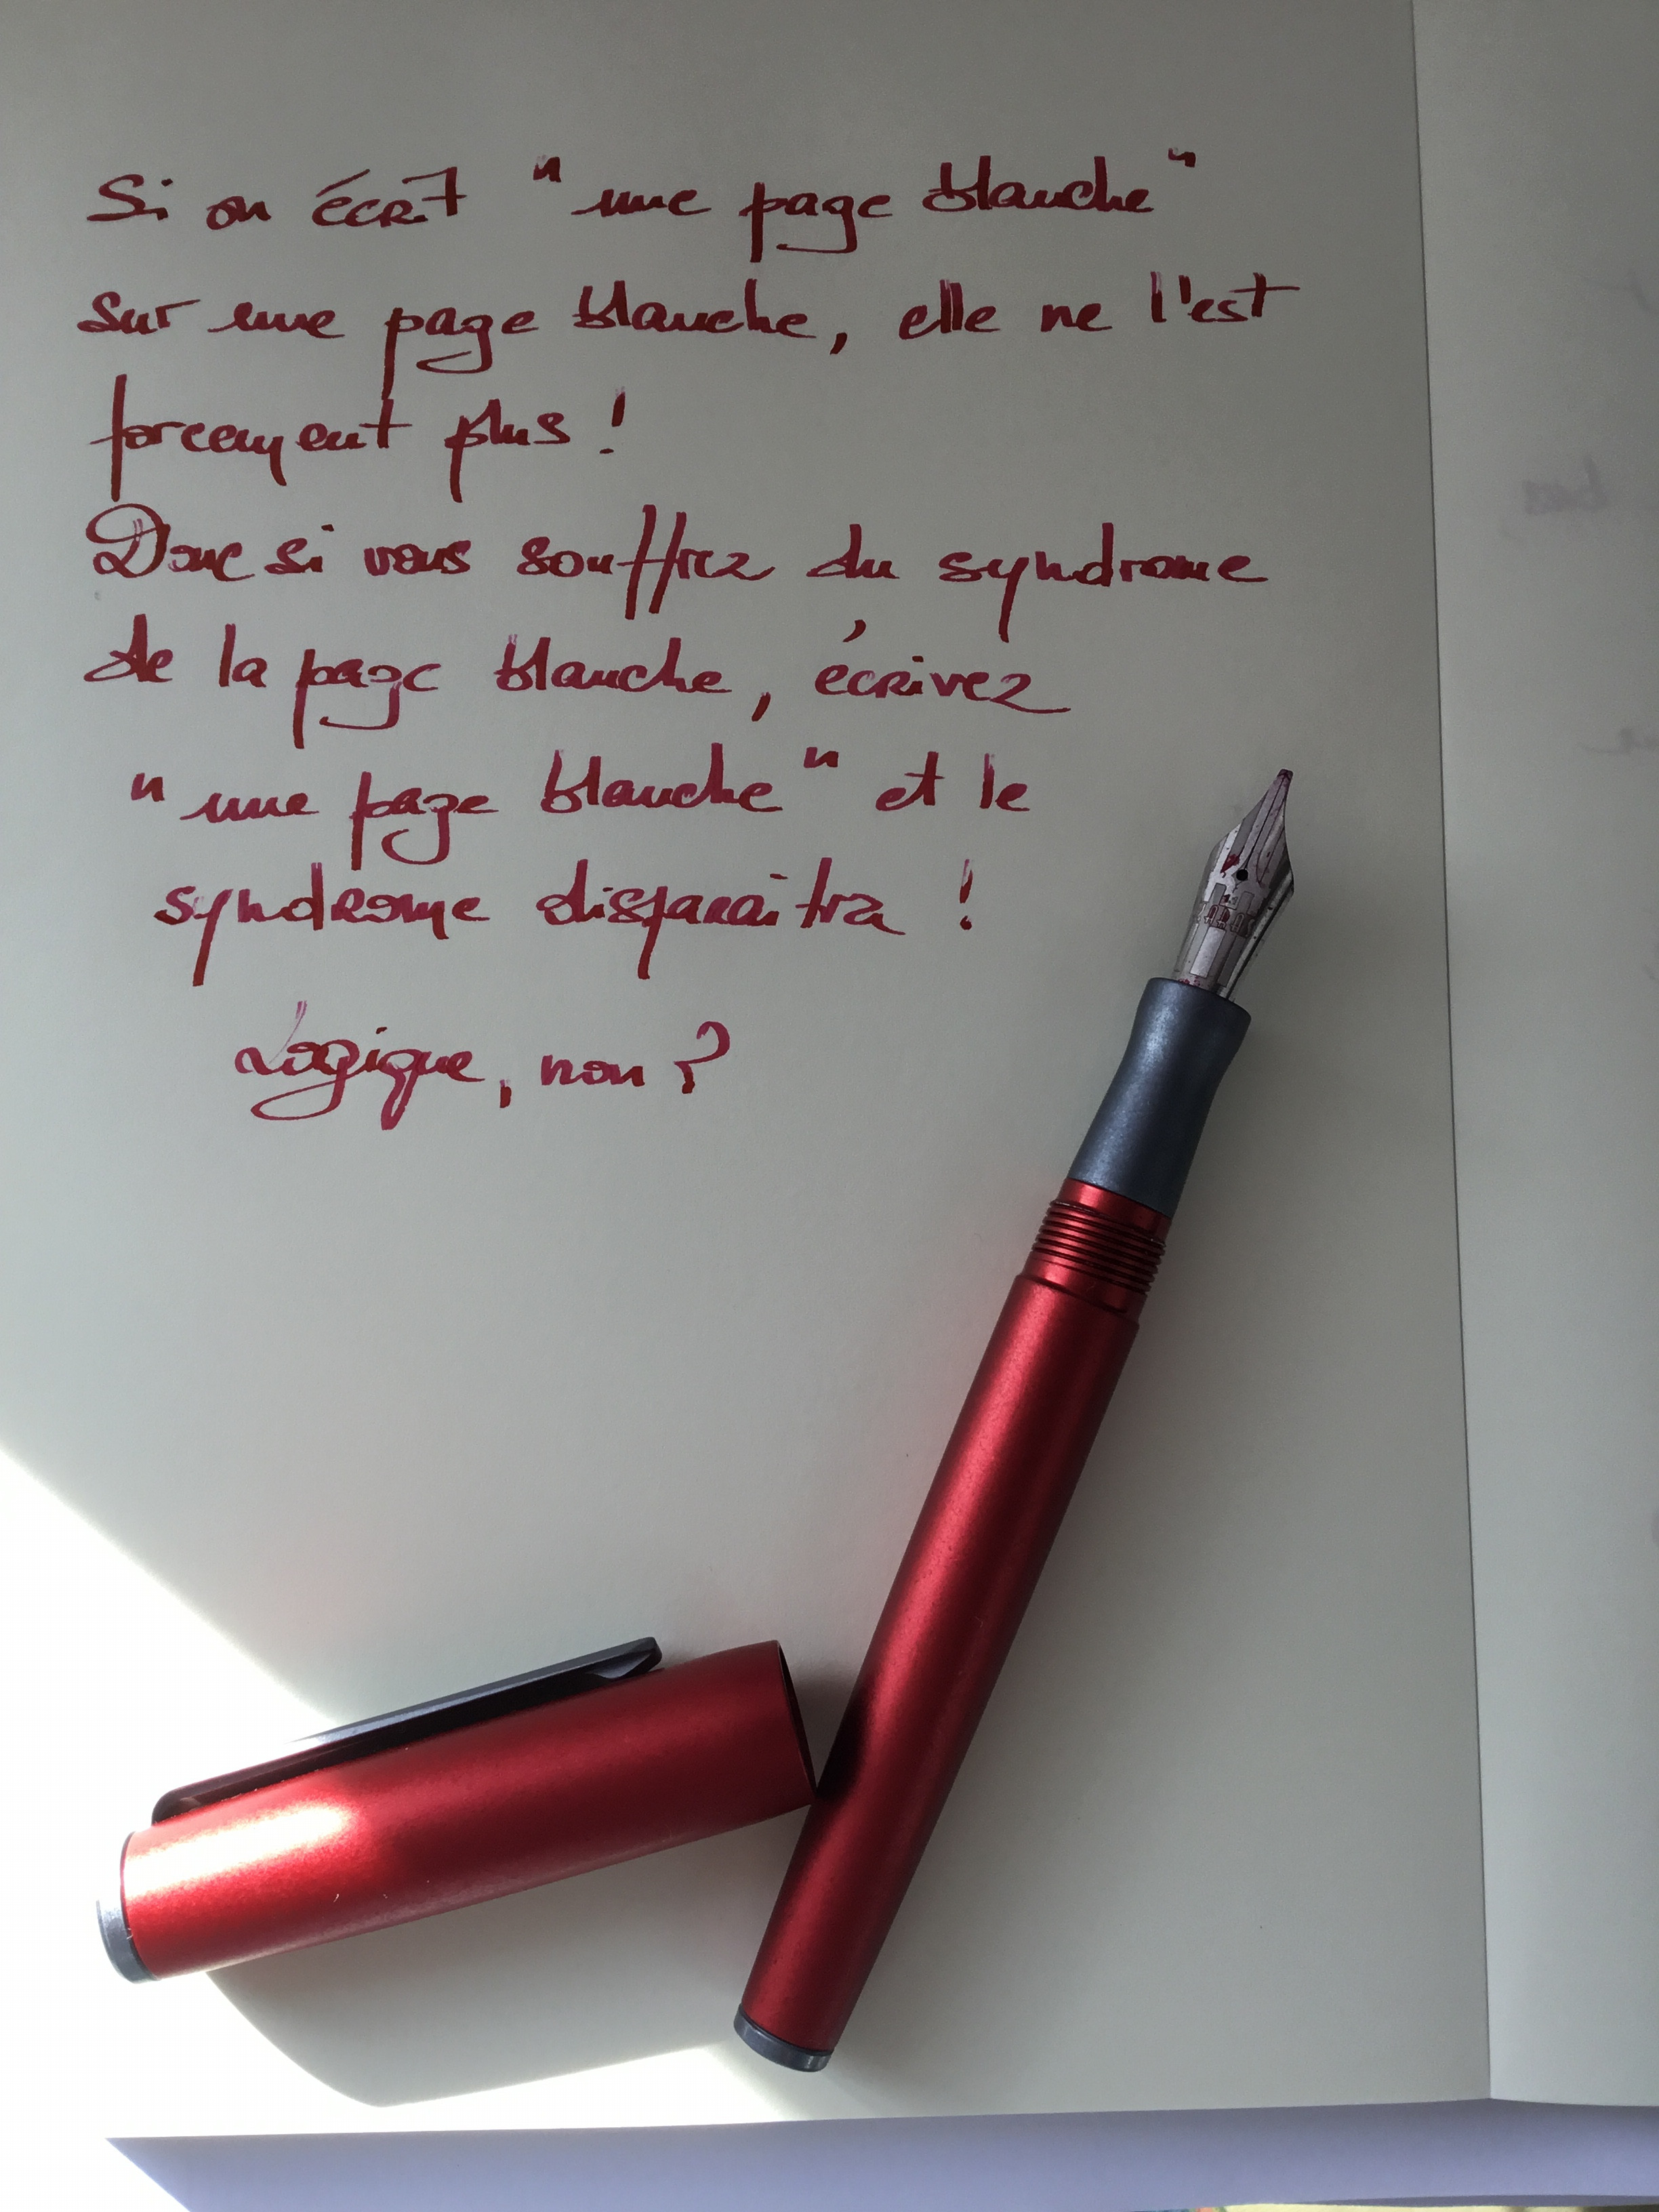 Si on écrit "une page blanche"
sur une page blanche, elle ne l'est
forcement plus !
Donc si vous souffrez du syndrome
de la page blanche, écrivez
"une page blanche" et le
syndrome disparaîtra !
Logique, non ?